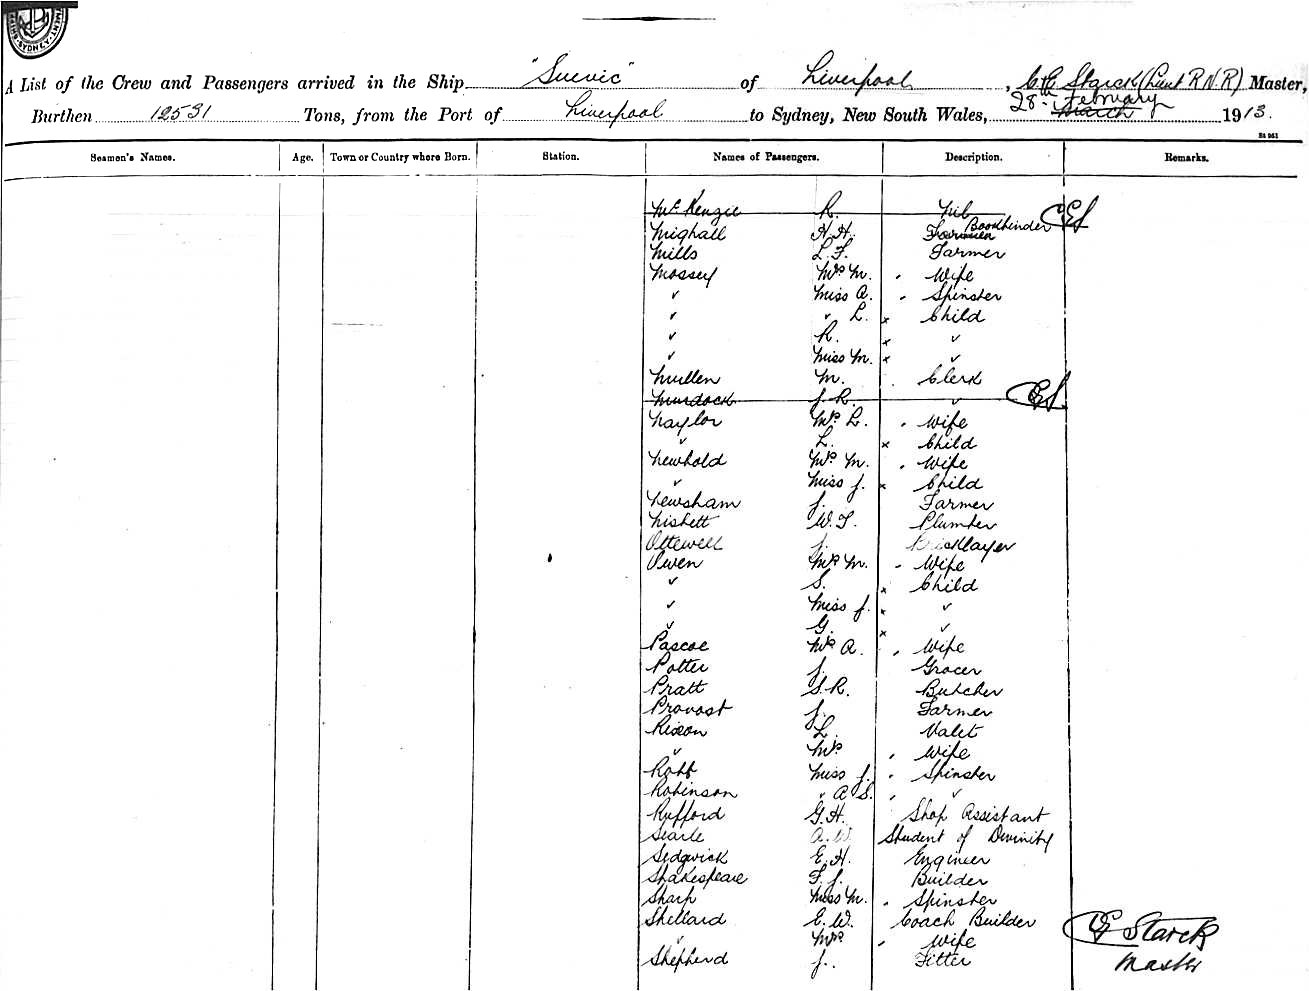 SYDNEY
A List of the Crew and Passengers arrived in the Ship "Suevic" of Liverpool, C E Starck (Lieut R.N.R) Master,
Burthen 12531 Tons, from the Port of Liverpool to Sydney, New South Wales, 28th February March 1913.
St 961
Seamen's Names. Age. Town or Country where Born. Station. Names of Passengers. Description. Remarks.
McKenzie R. Nil CES
Mighall H.H. Farmer Bookbinder
Mills L.F. Farmer
Mossey Mrs M. Wife
" Miss A. Spinster
" " L. x Child
" R. x "
" Miss M. x "
Mullen M. Clerk
Murdock J.R. " CES
Naylor Mrs L. Wife
" L. x Child
Newbold Mrs M. Wife
" Miss J. x Child
Newsham J. Farmer
Nisbett W.T. Plumber
Ottewell J. Bricklayer
Owen Mrs M. Wife
" S. x Child
" Miss J. x "
" G. x "
Pascoe Mrs A. Wife
Potter J. Grocer
Pratt S.R. Butcher
Provost J. Farmer
Rixon L. Valet
" Mrs Wife
Robb Miss J. Spinster
Robinson " A S. "
Rufford G.H. Shop Assistant
Searle A.W. Student of Divinity
Sedgwick E.H. Engineer
Shakespeare F.J. Builder
Sharp Miss M. Spinster
Shellard E.W. Coach Builder
" Mrs Wife
Shepherd J. Fitter
CE Starck
Master